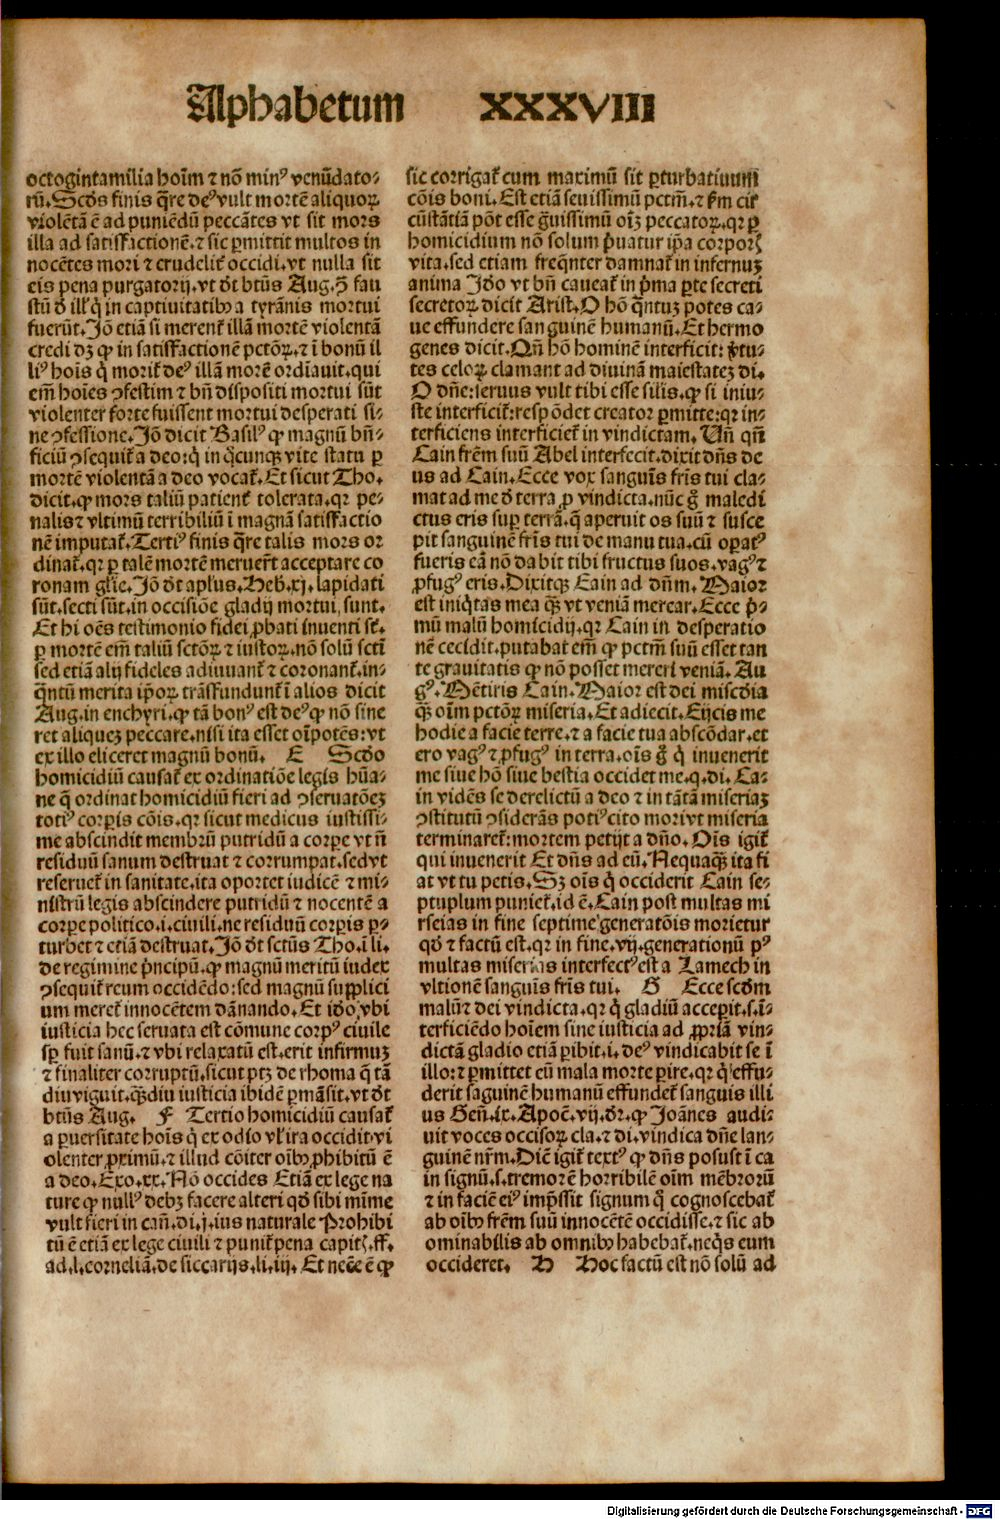 Alphabetum XXXVIII
octogintamilia hoim̄ ⁊ nō minꝰ venūdato⸗
rū. Scd̄s finis q̄re deꝰ vult mortē aliquoꝝ
violētā ē ad puniēdū peccātes vt sit mors
illa ad satisfactionē. ⁊ sic ꝑmittit multos in
nocētes mori ⁊ crudelit̄ occidi. vt nulla sit
eis pena purgatorij. vt dt̄ btūs Aug. ꝯ̄ fau
stū d̄ ill' q̄ in captiuitatibꝰ a tyrānis mortui
fuerūt. Jō etiā si merent̄ illā mortē violentā
credi dꝫ ꝙ in satisfactionē pctōꝝ. ⁊ ī bonū il
liꝰ hois q̄ morit̄ deꝰ illā morē ordiauit. qui
em̄ hoīes ꝯfestim ⁊ bn̄ dispositi mortui sūt
violenter forte fuissent mortui desperati si⸗
ne ꝯfessione. Jō dicit Basilꝰ ꝙ magnū bn̄⸗
ficiū ꝯsequit̄ a deo: q̄ in q̄cunqꝫ vite statu ꝑ
mortē violentā a deo vocat̄. Et sicut Tho.
dicit. ꝙ mors taliū patient̄ tolerata. qr pe⸗
nalis ⁊ vltimū terribiliū ī magnā satisfactio
nē imputat̄. Tertiꝰ finis q̄re talis mors or
dinat̄. qr ꝑ talē mortē meruer̄t acceptare co
ronam gl̄ie. Jō dt̄ apl̄us. Heb. xj. lapidati
sūt. secti sūt. in occisiōe gladij mortui. sunt.
Et hi oēs testimonio fidei ꝓbati inuenti st̄.
ꝑ mortē em̄ taliū sctōꝝ ⁊ iustoꝝ. nō solū sctī
sed etiā alij fideles adiuuant̄ ⁊ coronant̄. in⸗
q̄ntū merita ip̄oꝝ trāsfundunt̄ ī alios dicit
Aug. in enchyri. ꝙ tā bonꝰ est deꝰ ꝙ nō sine
ret aliqueꝫ peccare. nisi ita esset oīpotēs: vt
ex illo eliceret magnū bonū. E Scd̄o
homicidiū causat̄ ex ordinatiōe legis hūa⸗
ne q̄ ordinat homicidiū fieri ad ꝯseruatōeꝫ
totiꝰ corꝑis cōis. qr sicut medicus iustissi⸗
me abscindit membrū putridū a corꝑe vt n̄
residuū sanum destruat ⁊ corrumpat. sed vt
reseruet̄ in sanitate. ita oportet iudicē ⁊ mi⸗
nistrū legis abscindere putridū ⁊ nocentē a
corꝑe politico. i. ciuili. ne residuū corꝑis ꝑ⸗
turbet ⁊ etiā destruat. Jō dt̄ sctūs Tho. ī li.
de regimine p̄ncipū. ꝙ magnū meritū iudex
ꝯsequit̄ reum occidēdo: sed magnū supplici
um meret̄ innocētem dānando. Et iō vbi
iusticia hec seruata est cōmune corpꝰ ciuile
sꝑ fuit sanū. ⁊ vbi relaxatū est. erit infirmuꝫ
⁊ finaliter corruptū. sicut ptꝫ de rhoma q̄ tā
diu viguit. q̄ꝫdiu iusticia ibidē ꝑmāsit. vt dt̄
btūs Aug. F Tertio homicidiū causat̄
a ꝑuersitate hoīs q̄ ex odio vl' ira occidit. vi
olenter ꝓximū. ⁊ illud cōiter oībꝰ ꝓhibitū ē
a deo. Exo. xx. Nō occides Etiā ex lege na
ture ꝙ nullꝰ debꝫ facere alteri qd̄ sibi mīme
vult fieri in cañ. di. j. ius naturale Prohibi
tū ē etiā ex lege ciuili ⁊ punit̄ pena capitꝭ. ff.
ad. l. corneliā. de siccarijs. li. iij. Et nec̄e ē ꝙ
sic corrigat̄ cum maximū sit ꝑturbatiuum
cōis boni. Est etiā seuissimū pctm̄. ⁊ ẜm cir̄
cūstātiā pōt esse gͣuissimū oīꝫ peccatoꝝ. qr ꝑ
homicidium nō solum p̄uatur ip̄a corporꝭ
vita. sed etiam freq̄nter damnat̄ in infernuꝫ
anima Jdo vt bn̄ caueat̄ in p̄ma ꝑte secreti
secretoꝝ dicit Arist. O hō q̄ntuꝫ potes ca⸗
ue effundere sanguinē humanū. Et hermo
genes dicit. Qn̄ hō hominē interficit: v̓tu⸗
tes celoꝝ clamant ad diuinā maiestateꝫ di.
O dn̄e: seruus vult tibi esse silis. ꝙ si iniu⸗
ste interficit̄: respōdet creator ꝑmitte: qr in⸗
terficiens interficiet̄ in vindictam. Vn̄ qn̄
Cain frēm suū Abel interfecit. dixit dn̄s de
us ad Cain. Ecce vox sanguīs fr̄is tui cla⸗
mat ad me d̄ terra ꝓ vindicta. nūc g̊ maledi
ctus eris suꝑ terrā. q̄ aperuit os suū ⁊ susce
pit sanguinē fr̄is tui de manu tua. cū oꝑatꝰ
fueris eā nō dabit tibi fructus suos. vagꝰ ⁊
ꝓfugꝰ eris. Dixitqꝫ Cain ad dn̄m. Maior
est iniq̄tas mea q̄ꝫ vt veniā merear. Ecce p̄⸗
mū malū homicidij. qr Cain in desperatio
nē cecidit. putabat em̄ ꝙ pctm̄ suū esset tan
te grauitatis ꝙ nō posset mereri veniā. Au
gꝰ. Mētiris Cain. Maior est dei miscd̄ia
q̄ꝫ oīm pctōꝝ miseria. Et adiecit. Eijcis me
hodie a facie terre. ⁊ a facie tua abscōdar. et
ero vagꝰ ⁊ ꝓfugꝰ in terra. oīs g̊ q̄ inuenerit
me siue hō siue bestia occidet me. q. di. Ca⸗
in vidēs se derelictū a deo ⁊ in tātā miseriaꝫ
ꝯstitutū ꝯsiderās potiꝰ cito mori vt miseria
terminaret̄: mortem petijt a dño. Oīs igit̄
qui inuenerit Et dn̄s ad eū. Nequaq̄ꝫ ita fi
at vt tu petis. Sꝫ oīs q̄ occiderit Cain se⸗
ptuplum puniet̄. id ē. Cain post multas mi
rseias in fine septime generatōis morietur
qd̄ ⁊ factū est. qr in fine. vij. generationū pꝰ
multas miserias interfectꝰ est a Lamech in
vltionē sanguīs fr̄is tui. G Ecce scd̄m
malū ⁊ dei vindicta. qr q̄ gladiū acceꝑit. s. ī⸗
terficiēdo hoīem sine iusticia ad ꝓpriā vin⸗
dictā gladio etiā ꝑibit. i. deꝰ vindicabit se ī
illo: ⁊ ꝑmittet eū mala morte ꝑire. qr q̄ effu⸗
derit sāguinē humanū effundet̄ sanguis illi
us Geñ. ix. Apoc̄. vij. dr̄. ꝙ Joānes audi⸗
uit voces occisoꝝ cla. ⁊ di. vindica dn̄e san⸗
guinē nr̄m. Dic̄ igit̄ textꝰ ꝙ dn̄s posust ī ca
in signū. s. tremorē horribilē oīm mēbroꝝū
⁊ in faciē eiꝰ imp̄ssit signum q̊ cognoscebat̄
ab oībꝰ frēm suū innocētē occidisse. ⁊ sic ab
ominabilis ab omnibꝰ habebat̄. neq̓s eum
occideret. H Hoc factū est nō solū ad
Digitalisierung gefördert durch die Deutsche Forschungsgemeinschaft - DFG